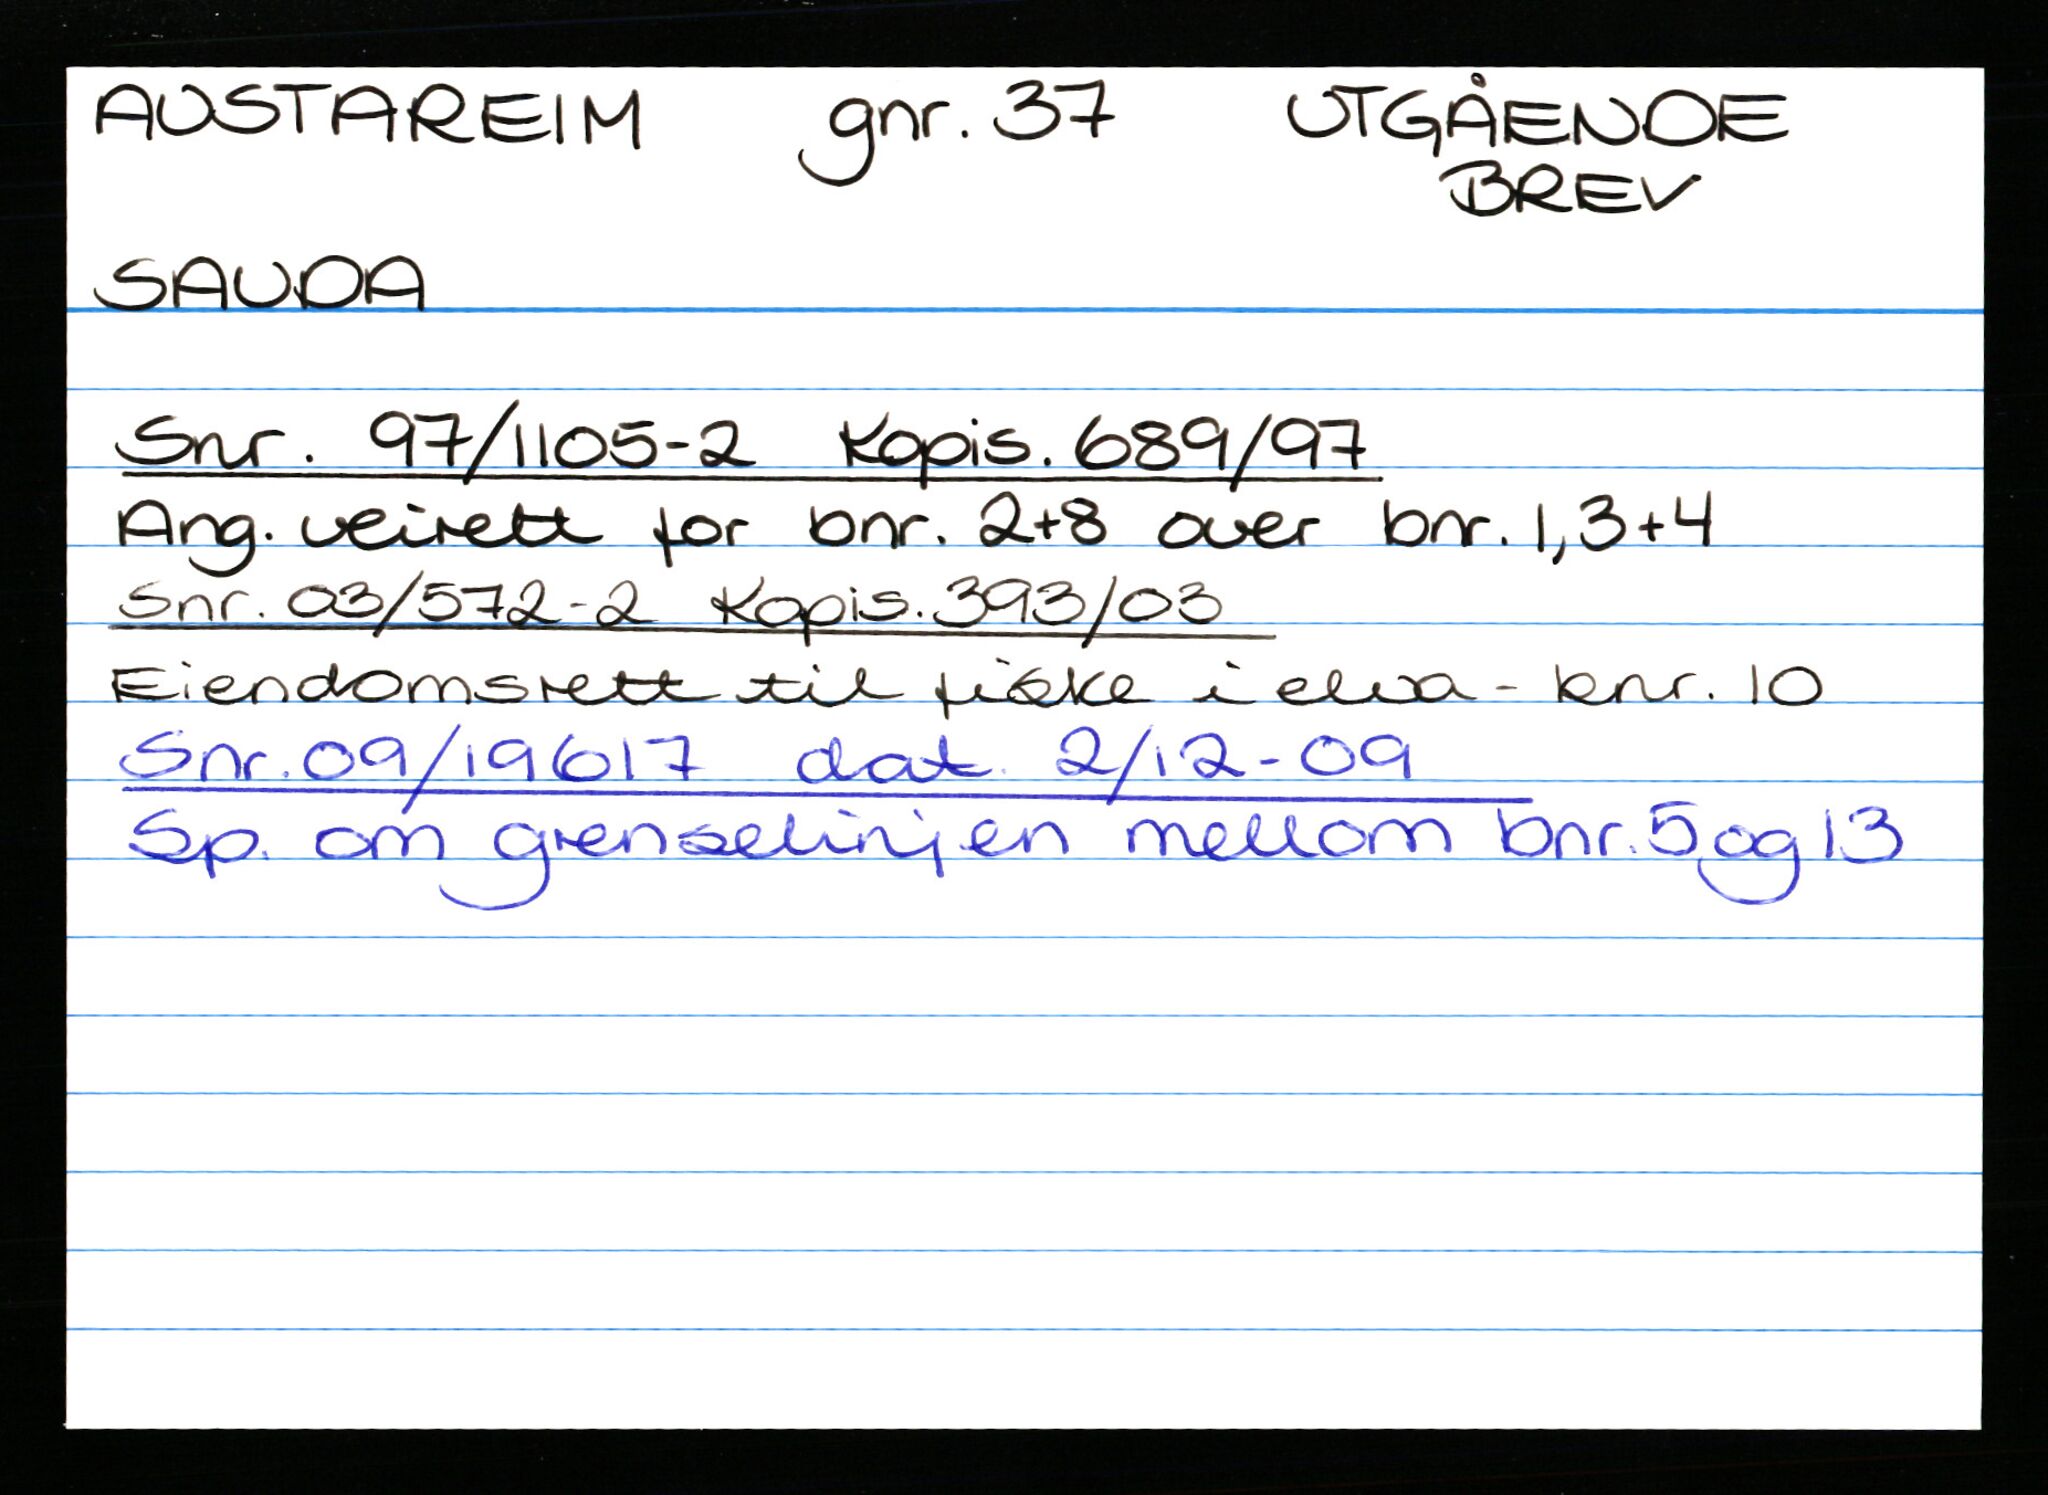 AUSTAREIM gnr. 37 UTGÅENDE
BREV
SAUDA
Snr. 97/1105-2 Kopis. 689/97
Ang. veirett for bnr. 2+8 over bnr. 1,3+4
Snr. 03/572-2 Kopis. 393/03
Eiendomsrett til fiske i elva - bnr. 10
Snr. 09/19617 dat. 2/12-09
Sp. om grenselinjen mellom bnr. 5 og 13